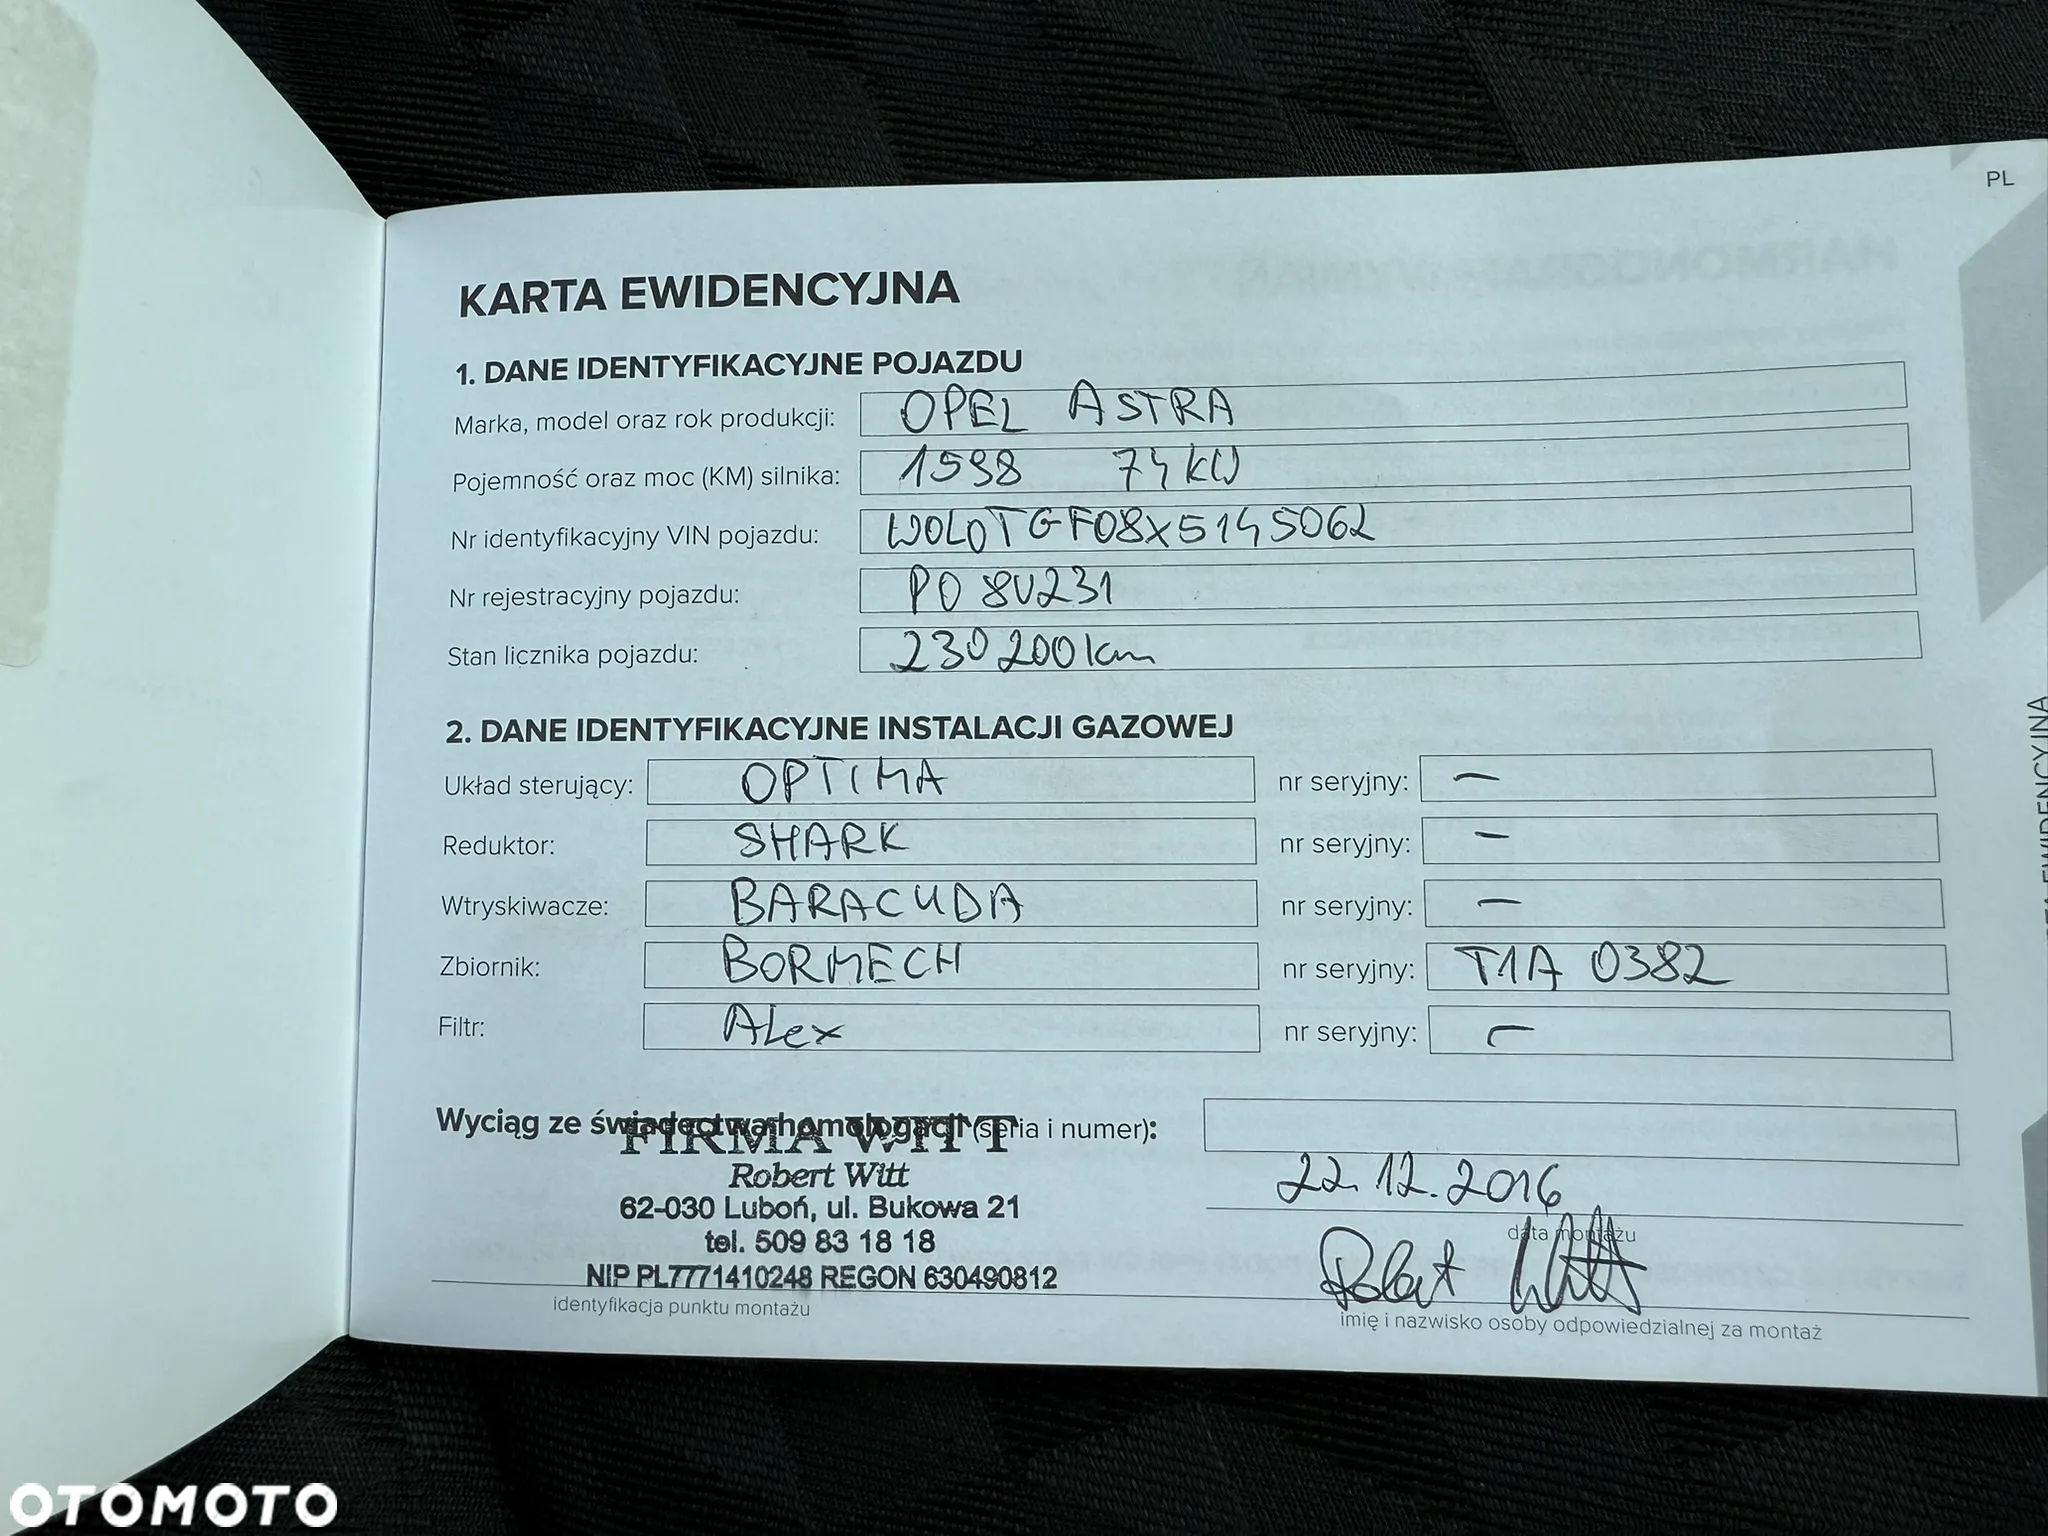 PL
KARTA EWIDENCYJNA
1. DANE IDENTYFIKACYJNE POJAZDU
Marka, model oraz rok produkcji: OPEL ASTRA
Pojemność oraz moc (KM) silnika: 1598 74 kW
Nr identyfikacyjny VIN pojazdu: W0L0TGF08X5145062
Nr rejestracyjny pojazdu: PO 8U231
Stan licznika pojazdu: 230 200 km
2. DANE IDENTYFIKACYJNE INSTALACJI GAZOWEJ
Układ sterujący: OPTIMA nr seryjny: –
Reduktor: SHARK nr seryjny: –
Wtryskiwacze: BARACUDA nr seryjny: –
Zbiornik: BORMECH nr seryjny: T1A 0382
Filtr: ALex nr seryjny: –
Wyciąg ze świadectwa homologacji (seria i numer):
FIRMA WITT
Robert Witt
62-030 Luboń, ul. Bukowa 21
tel. 509 83 18 18
NIP PL7771410248 REGON 630490812
identyfikacja punktu montażu
22.12.2016
data montażu
Robert Witt
imię i nazwisko osoby odpowiedzialnej za montaż
OTOMOTO